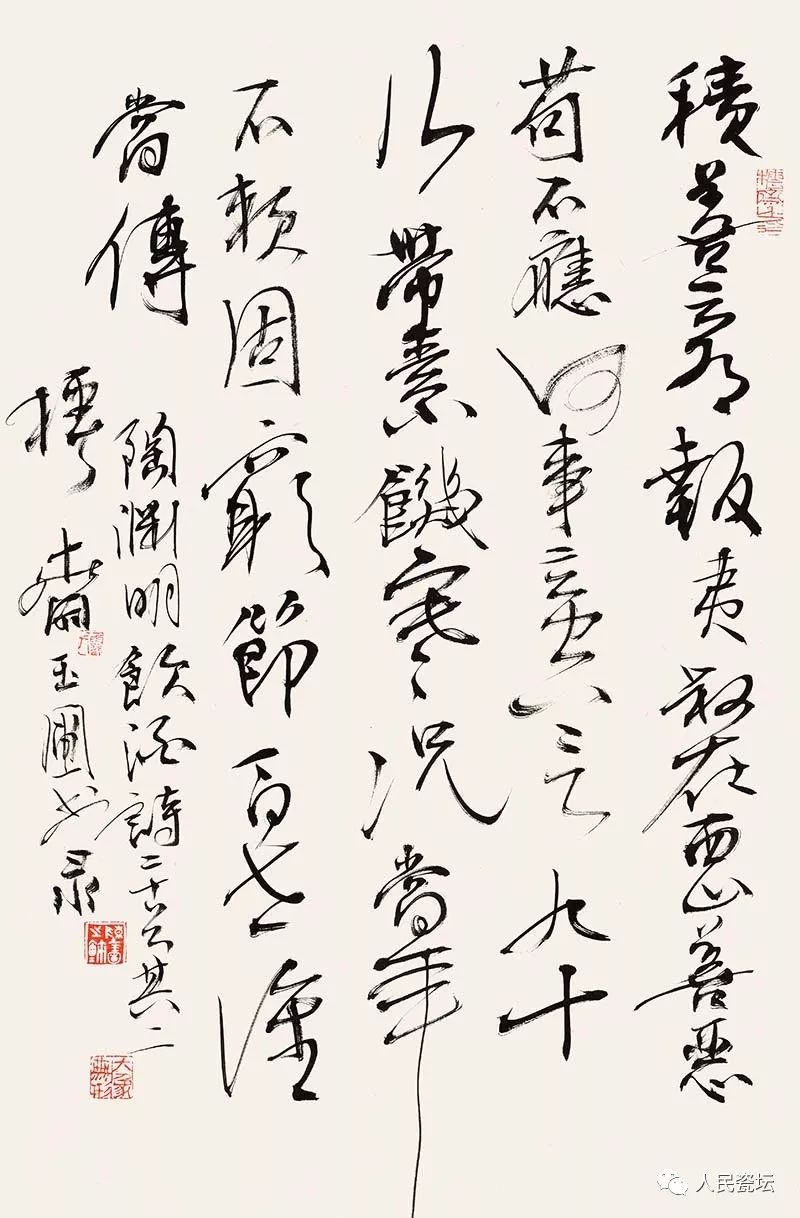 積善云有報夷叔在西山善惡
苟不應何事立空言九十
行帶索饑寒況當年
不賴固窮節百世誰
當傳
陶淵明飲酒詩二十首其二
齋玉圃錄
大象無形
人民瓷坛